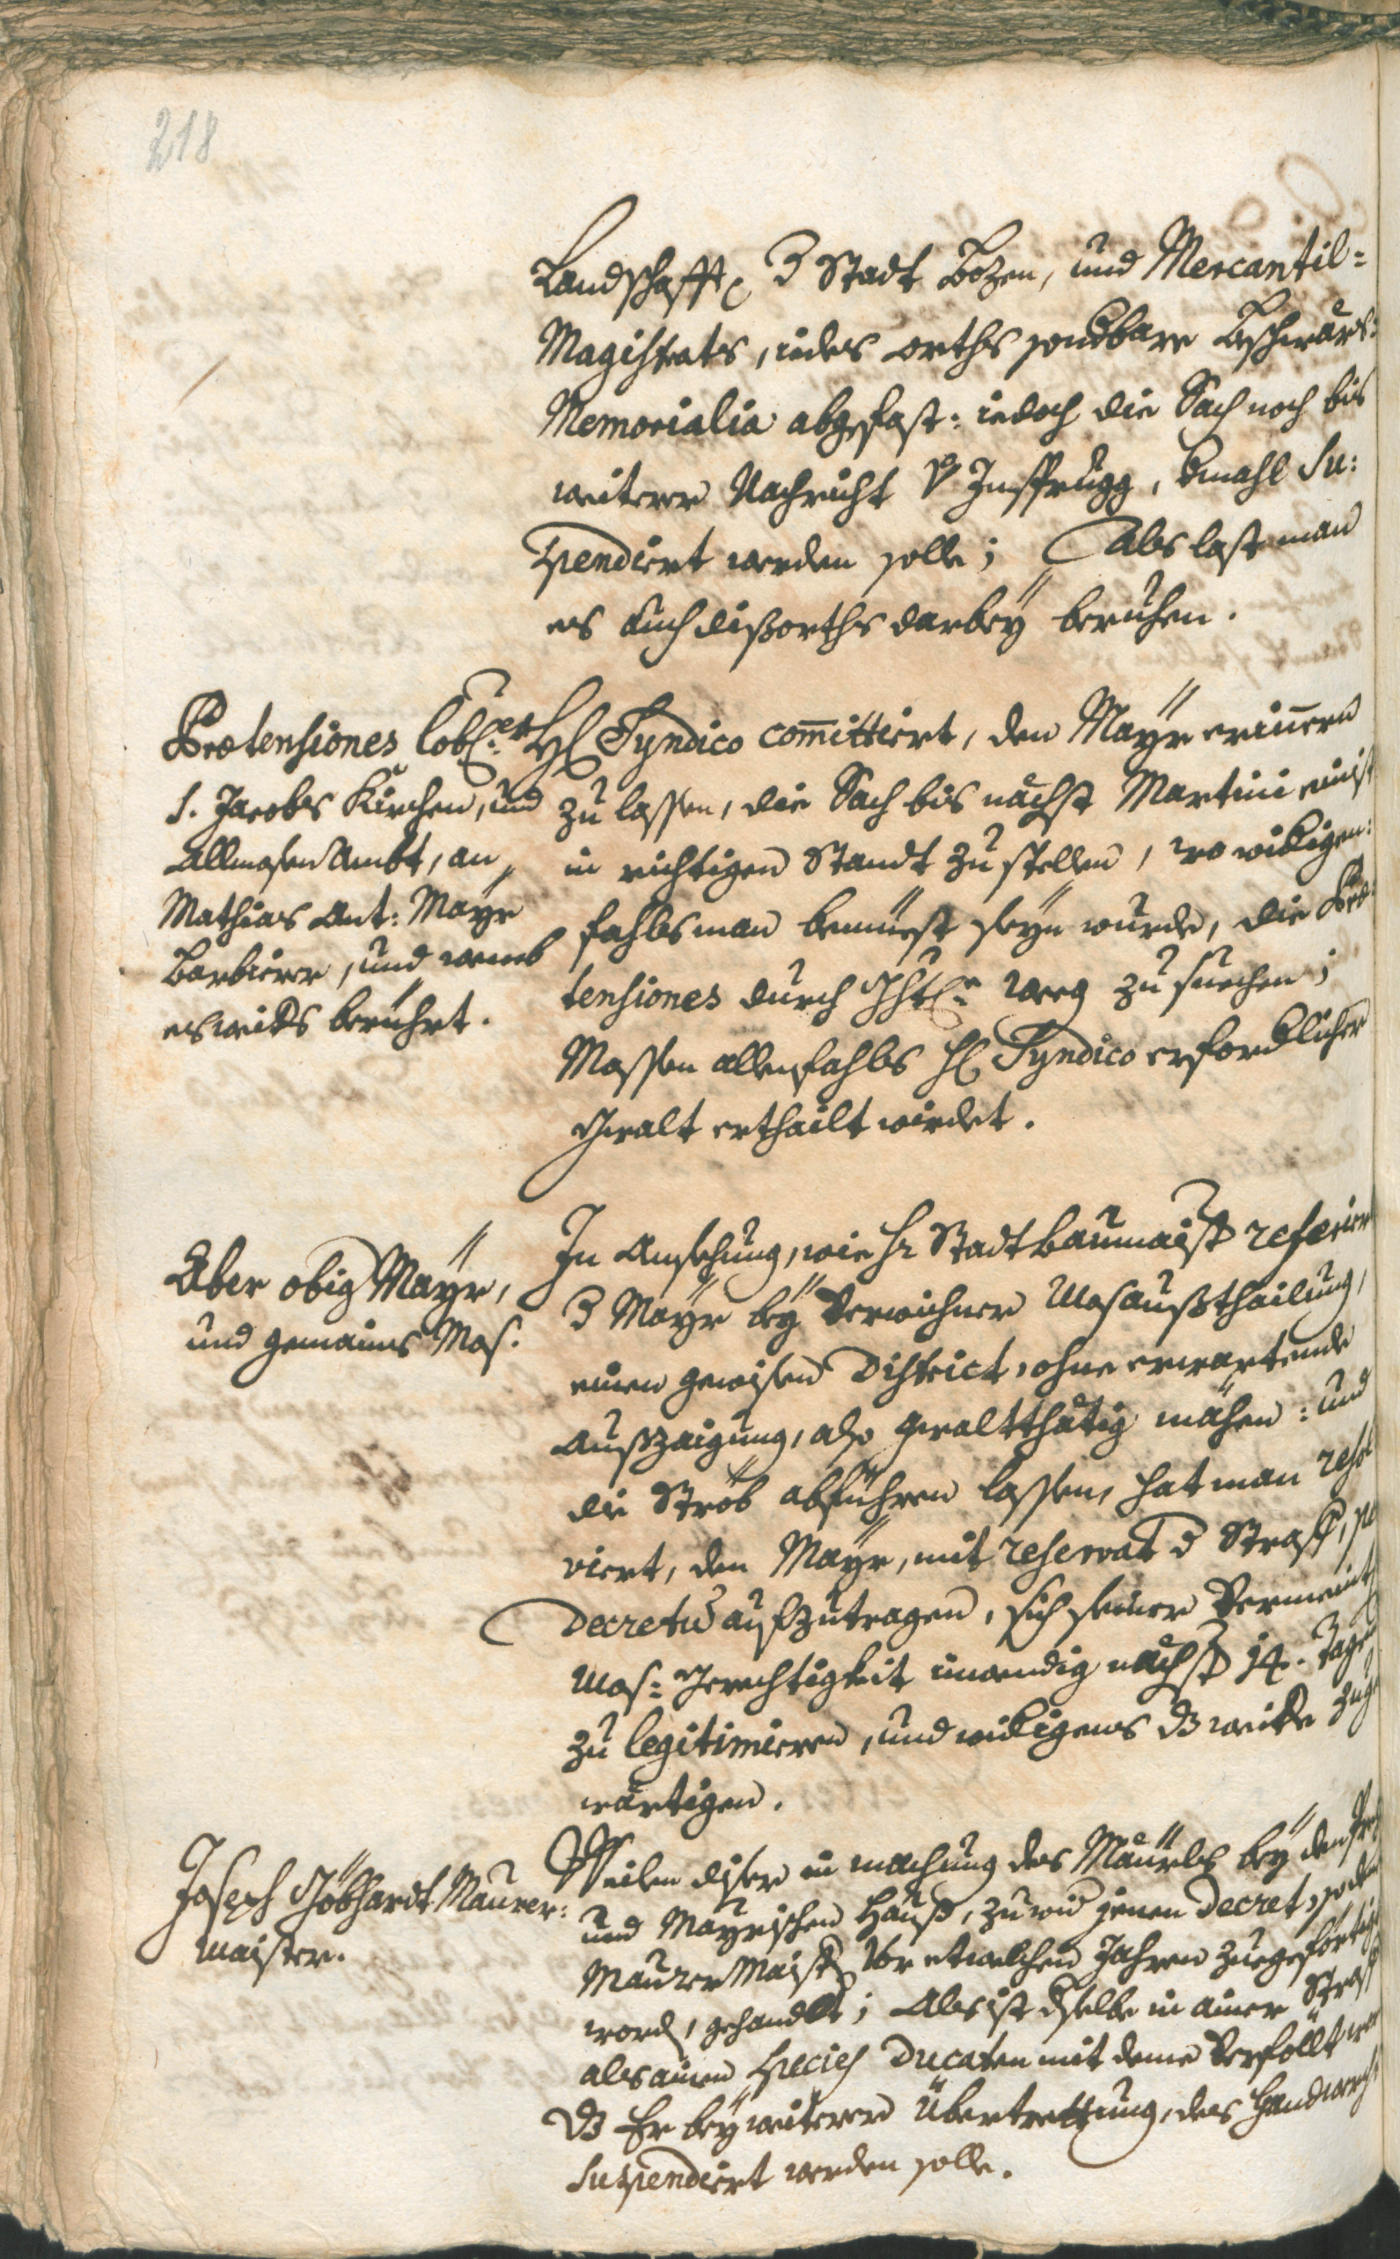 218
Landschafft, d Stadt Bozen, und Mercantil-
Magistrats, iedes orths sondbare Beschwärs-
Memorialia abgefast: iedoch die Sach noch bis
weitere Nachricht v Insprugg, dmahl su-
spendiert werden solle; Als last man
es auch dißorths darbey beruhen.
Prætensiones lobl:er
S. Jacobs Kirchen, und
Allmosen Ambt, an
Mathias Ant: Mayr
Barbierer, und wemb
es weiters berührt.
H Syndico committiert, den Mayr erinnern
zu lassen, die Sach bis nächst Martini
in richtigen Standt zu stellen, wo widigen-
fahls man bemüest seyn wurde, die Præ-
tensiones durch Weeg zu suechen;
Massen allenfahls H Syndico erfordlicher
Gwalt erthailt wirdet.
Aber obig Mayr,
und gemaines Mos.
In Ansehung, wie Hr Stadtbaumaist referier
d Mayr bey verwichner Mosaußthailung,
einen gewisen District, ohne erwartende
Außzaigung, also gwaltthätig mähen: und
die Ströb abführen lassen, hat man resol
viert, den Mayr, mit reservat d Straff,
Decretu aufzutragen, sich seiner vermeint
Mos-Gerechtigkeit inwendig nächst 14. Tagen
zu legitimieren, und widigens dz weitere zuge
wärtigen.
Joseph Göbhardt Maurer-
maister.
Weilen diser in machung des Mäurls bey den
und Mayrischen Hauß, zuwid jenen Decret, so den
Maurer Maist vor etwelchen Jahren zuegeförtigt
word, gehandlt; Als ist dselbe in ainer Straff
als ainen species Ducaten mit deme verföllt
dz Er bey weiterer Übertrettung, des Handwerchs
suspendiert werden solle.